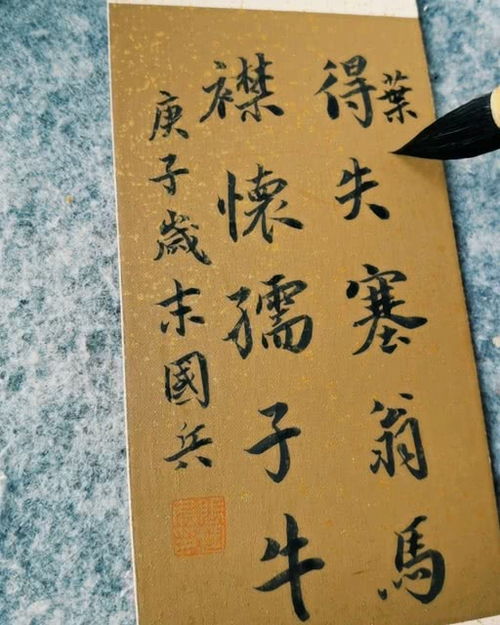 得失塞翁馬
襟懷孺子牛
葉
庚子歲末國兵